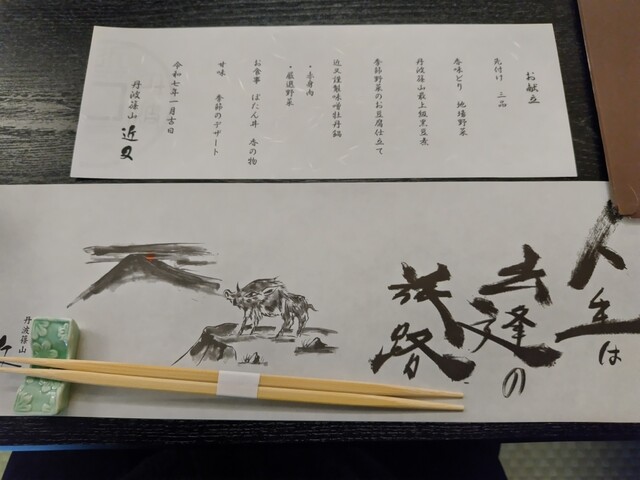 お献立
先付け 三品
香味どり 地場野菜
丹波篠山最上級黒豆煮
季節野菜のお豆腐仕立て
近又謹製味噌牡丹鍋
・赤身肉
・厳選野菜
お食事 ぼたん丼 香の物
甘味 季節のデザート
令和七年一月吉日
丹波篠山 近又
人生は
出逢の
旅路
丹波篠山